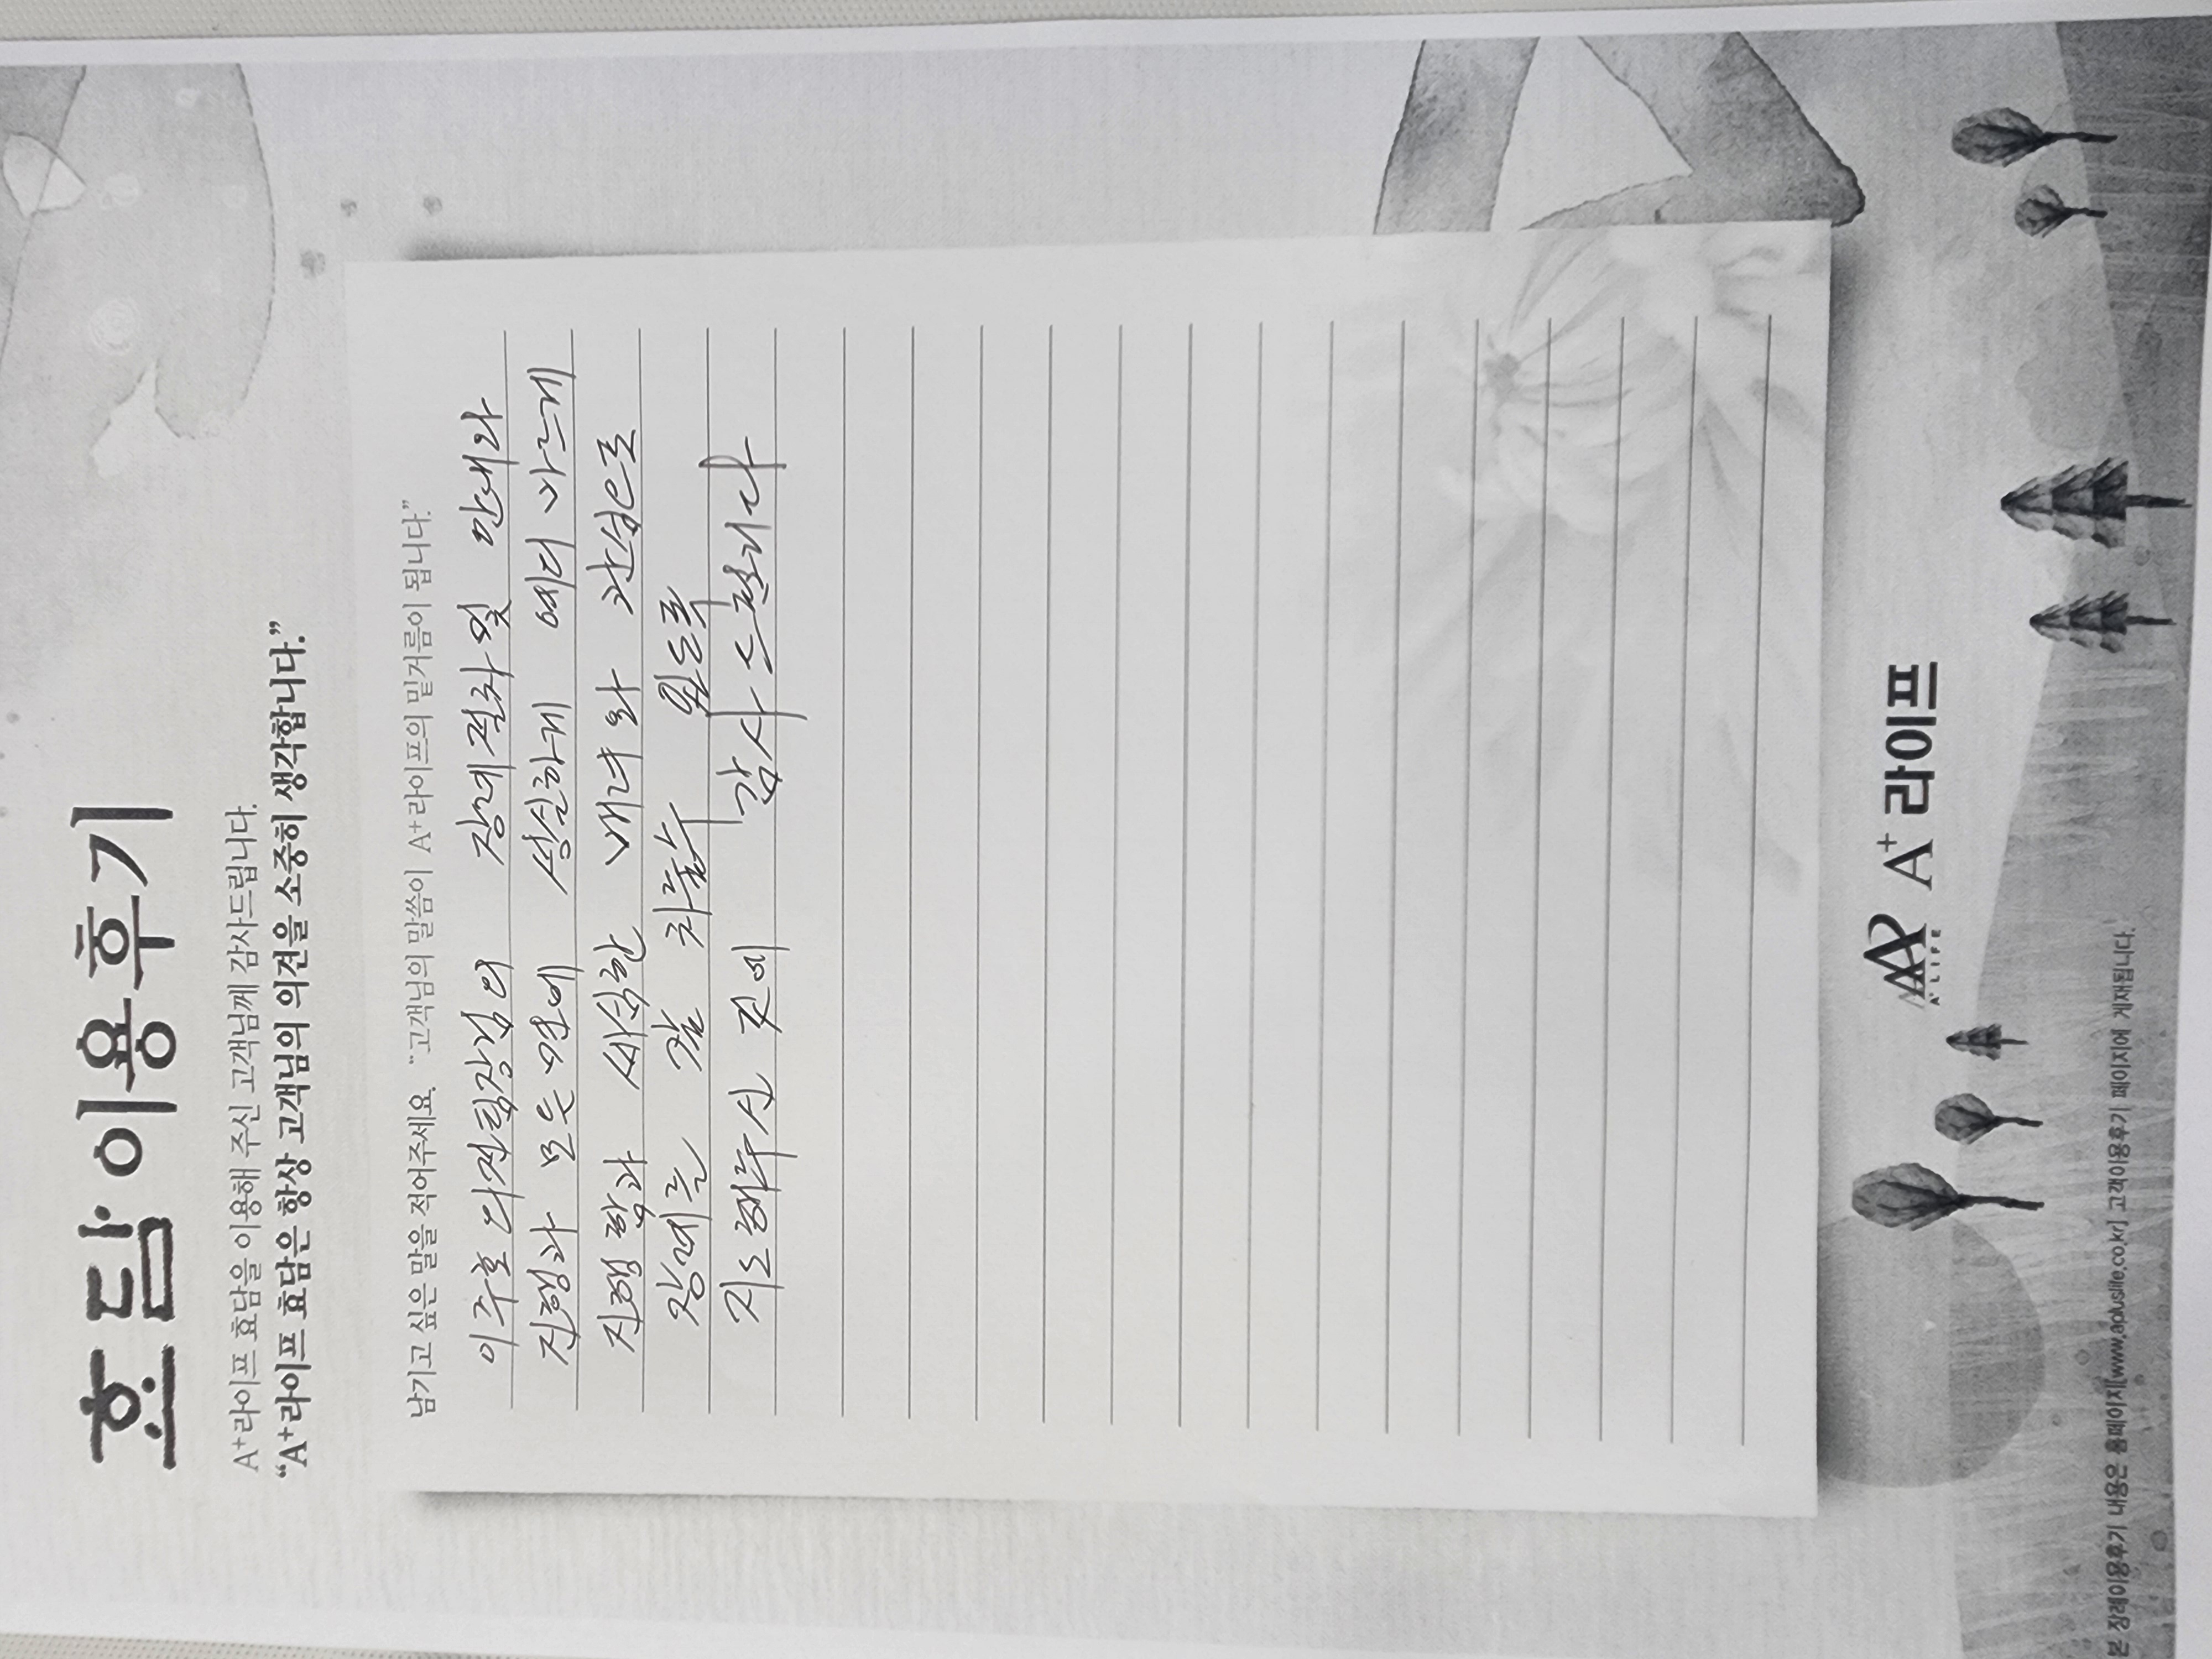 효담 이용후기
A+라이프 효담을 이용해 주신 고객님께 감사드립니다.
“A+라이프 효담은 항상 고객님의 의견을 소중히 생각합니다.”
남기고 싶은 말을 적어주세요. “고객님의 말씀이 A+라이프의 밑거름이 됩니다.”
이주호 장례절차 및 안내와
진행과 모든 면에 성실하게 예의 바르게
진행 함과 세심한 배려와 관심으로
장례를 잘 치룰수 있도록
지도해주신 것에 감사드립니다
A+ LIFE A+라이프
본 장례이용후기 내용은 홈페이지[www.apluslife.co.kr] 고객이용후기 페이지에 게재됩니다.